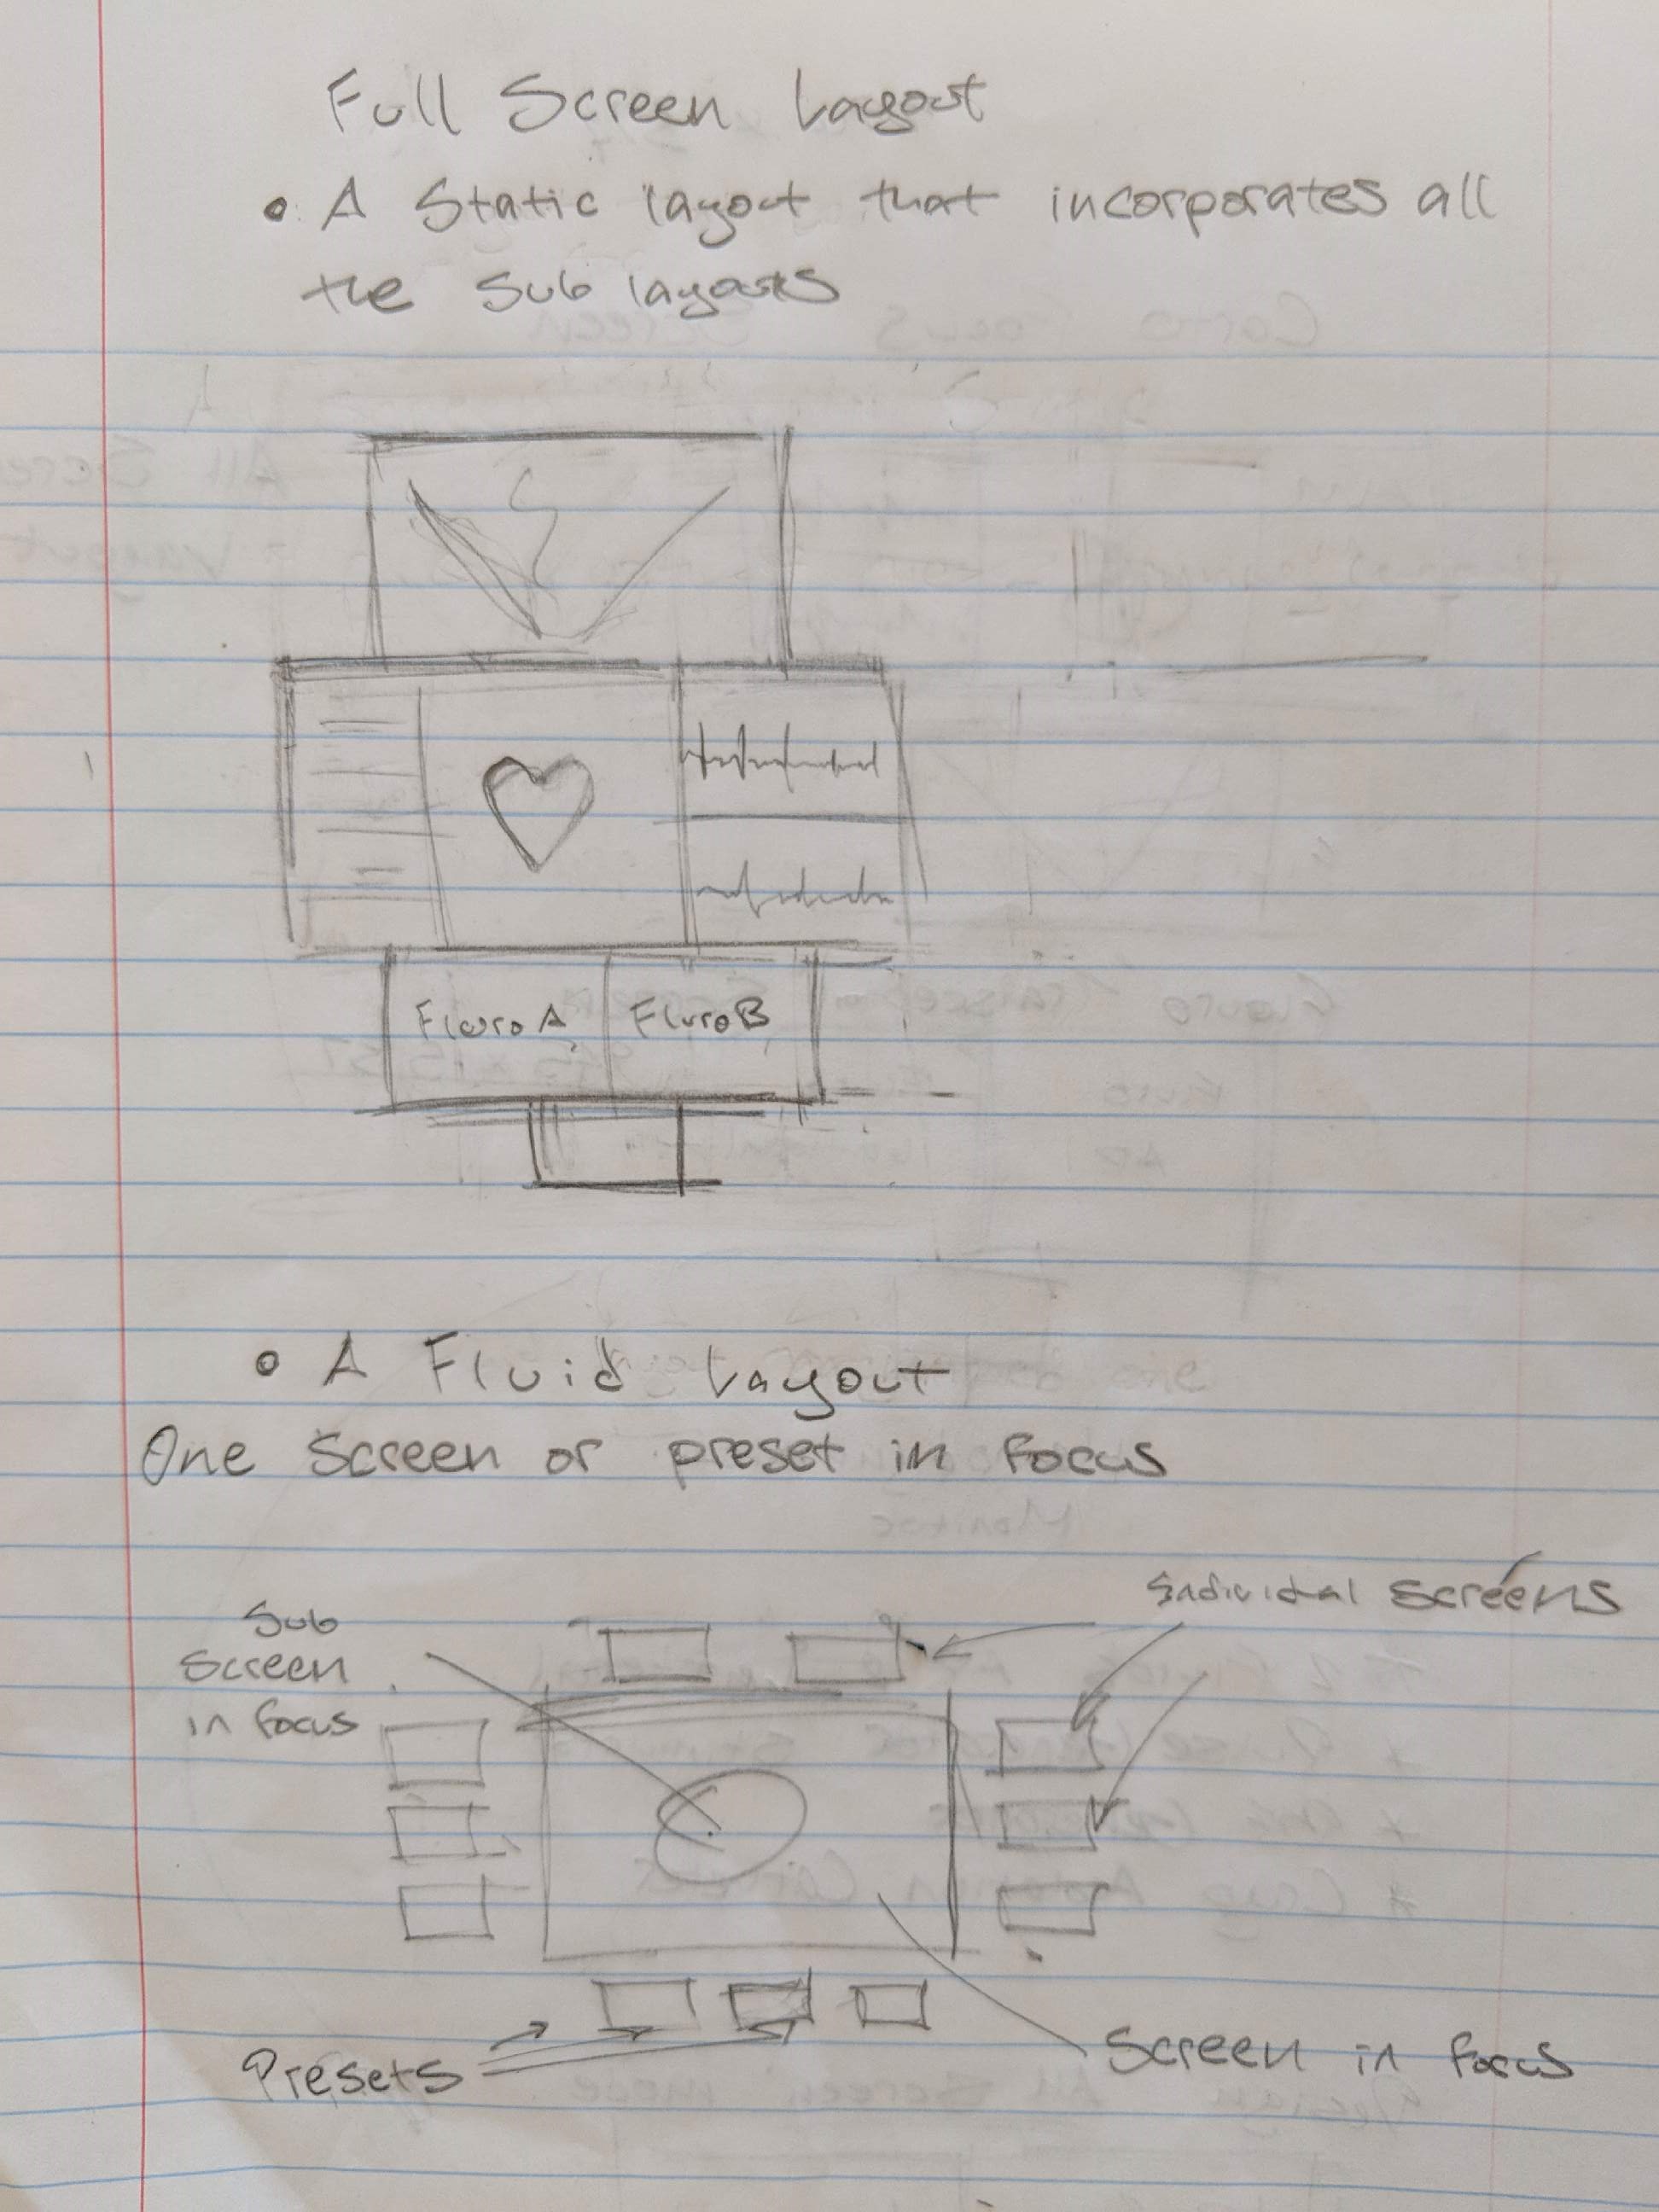 Full Screen Layout
• A Static layout that incorporates all
the sub layouts
Fluro A
Fluro B
• A Fluid Layout
One Screen or preset in focus
Individal screens
Sub
Screen
in focus
Presets
Screen in focus